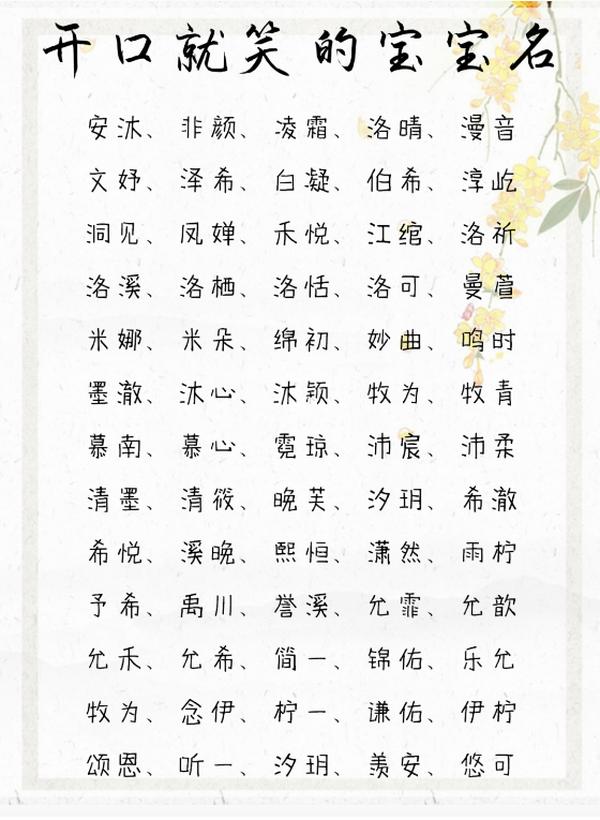 开口就笑的宝宝名
安沐、非颜、凌霜、洛晴、漫音
文妤、泽希、白凝、伯希、淳屹
洞见、凤婵、禾悦、江绾、洛祈
洛溪、洛栖、洛恬、洛可、曼萱
米娜、米朵、绵初、妙曲、鸣时
墨澈、沐心、沐颖、牧为、牧青
慕南、慕心、霓琼、沛宸、沛柔
清墨、清筱、晚芙、汐玥、希澈
希悦、溪晚、熙恒、潇然、雨柠
予希、禹川、誉溪、允霏、允歆
允禾、允希、简一、锦佑、乐允
牧为、念伊、柠一、谦佑、伊柠
颂恩、听一、汐玥、羡安、悠可